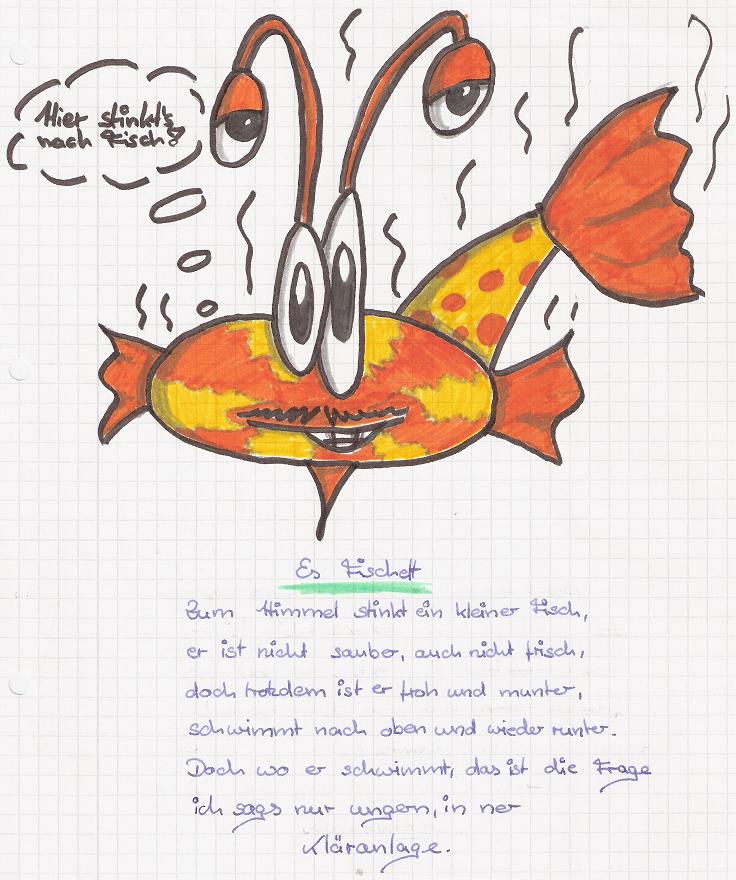 Hier stinkt's
nach Fisch?
Es Fischelt
Zum Himmel stinkt ein kleiner Fisch,
er ist nicht sauber, auch nicht frisch,
doch trotzdem ist er froh und munter,
schwimmt nach oben und wieder runter.
Doch wo er schwimmt, das ist die Frage
ich sags nur ungern, in ner
Kläranlage.